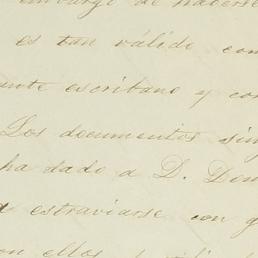 embargo de hacerse
es tan válido com
ante escribano y con
Los documentos sim
ha dado a D. Dom
estraviarse con g
on ellos